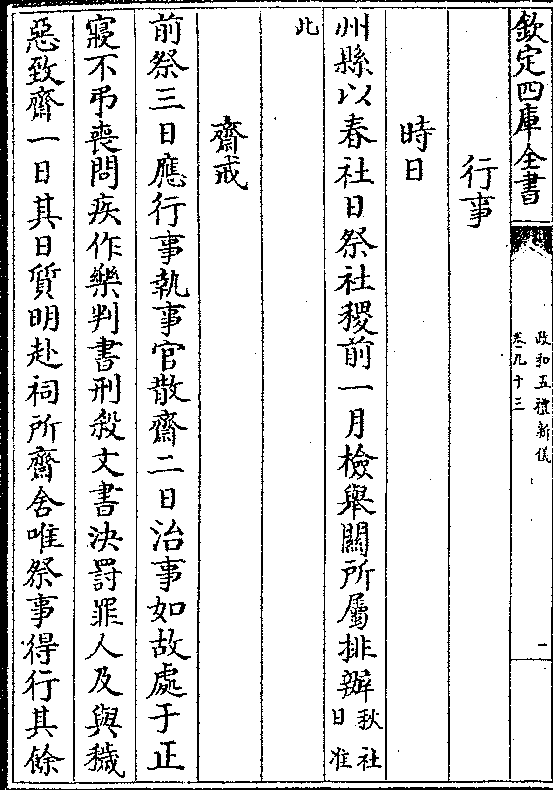 欽定四庫全書
政和五禮新儀
卷九十三
一
行事
時日
州縣以春社日祭社稷前一月檢舉關所屬排辦秋社
日准
此
齋戒
前祭三日應行事執事官散齋二日治事如故處于正
寢不弔喪問疾作樂判書刑殺文書決罰罪人及與穢
惡致齋一日其日質明赴祠所齋舍唯祭事得行其餘